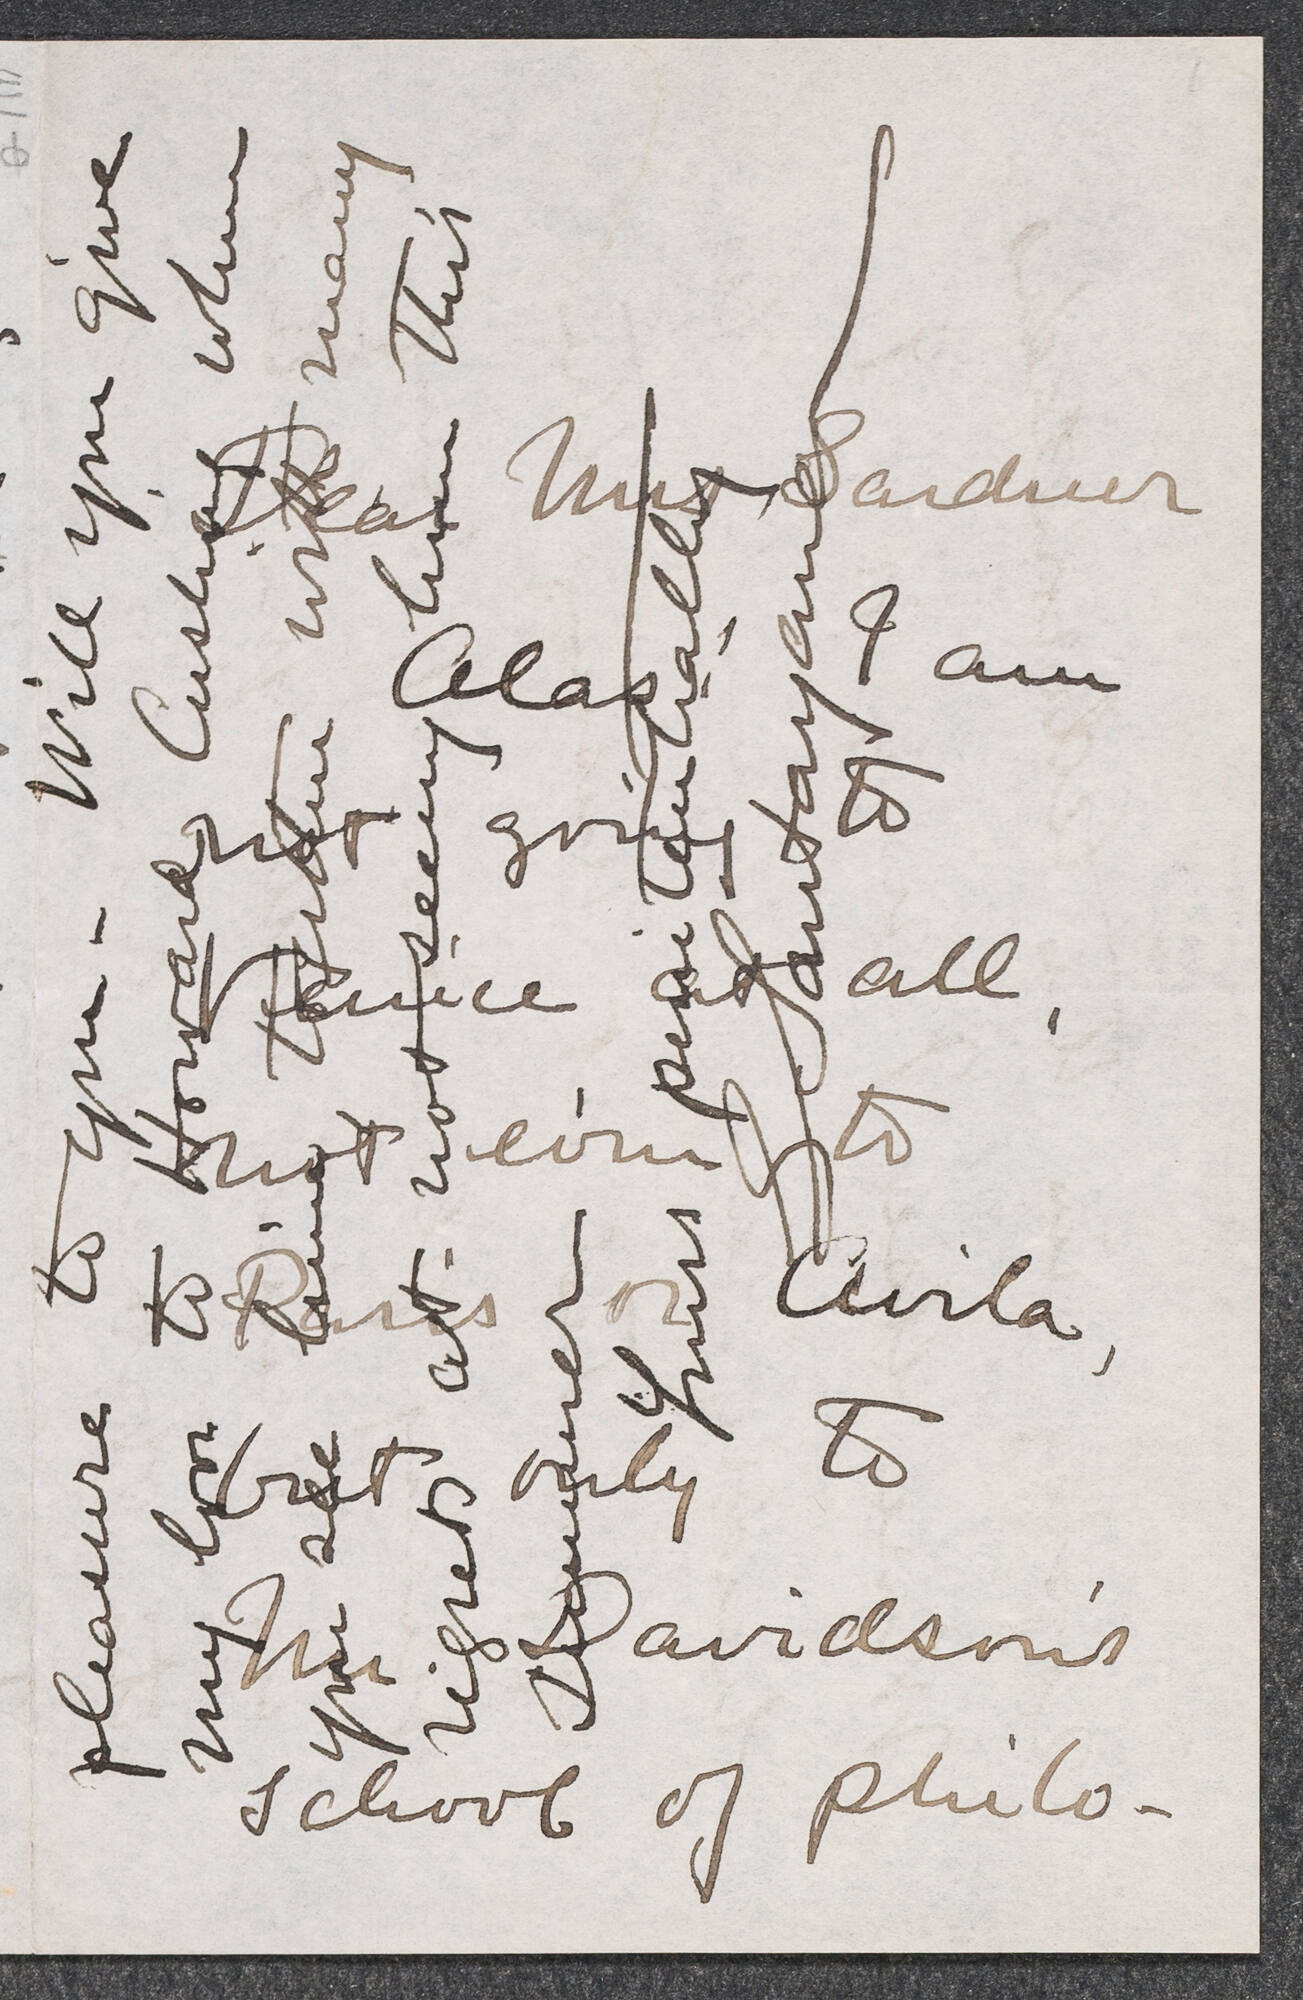 Dear Mrs Gardner
Alas, I am
not going to
Venice at all,
not even to
Paris or Avila,
but only to
Mr Davidson's
school of philo-
pleasure to you - Will you give
my love to Howard Cushing when
you see him with many
regrets at not seeing him this
summer
Yours penitentially